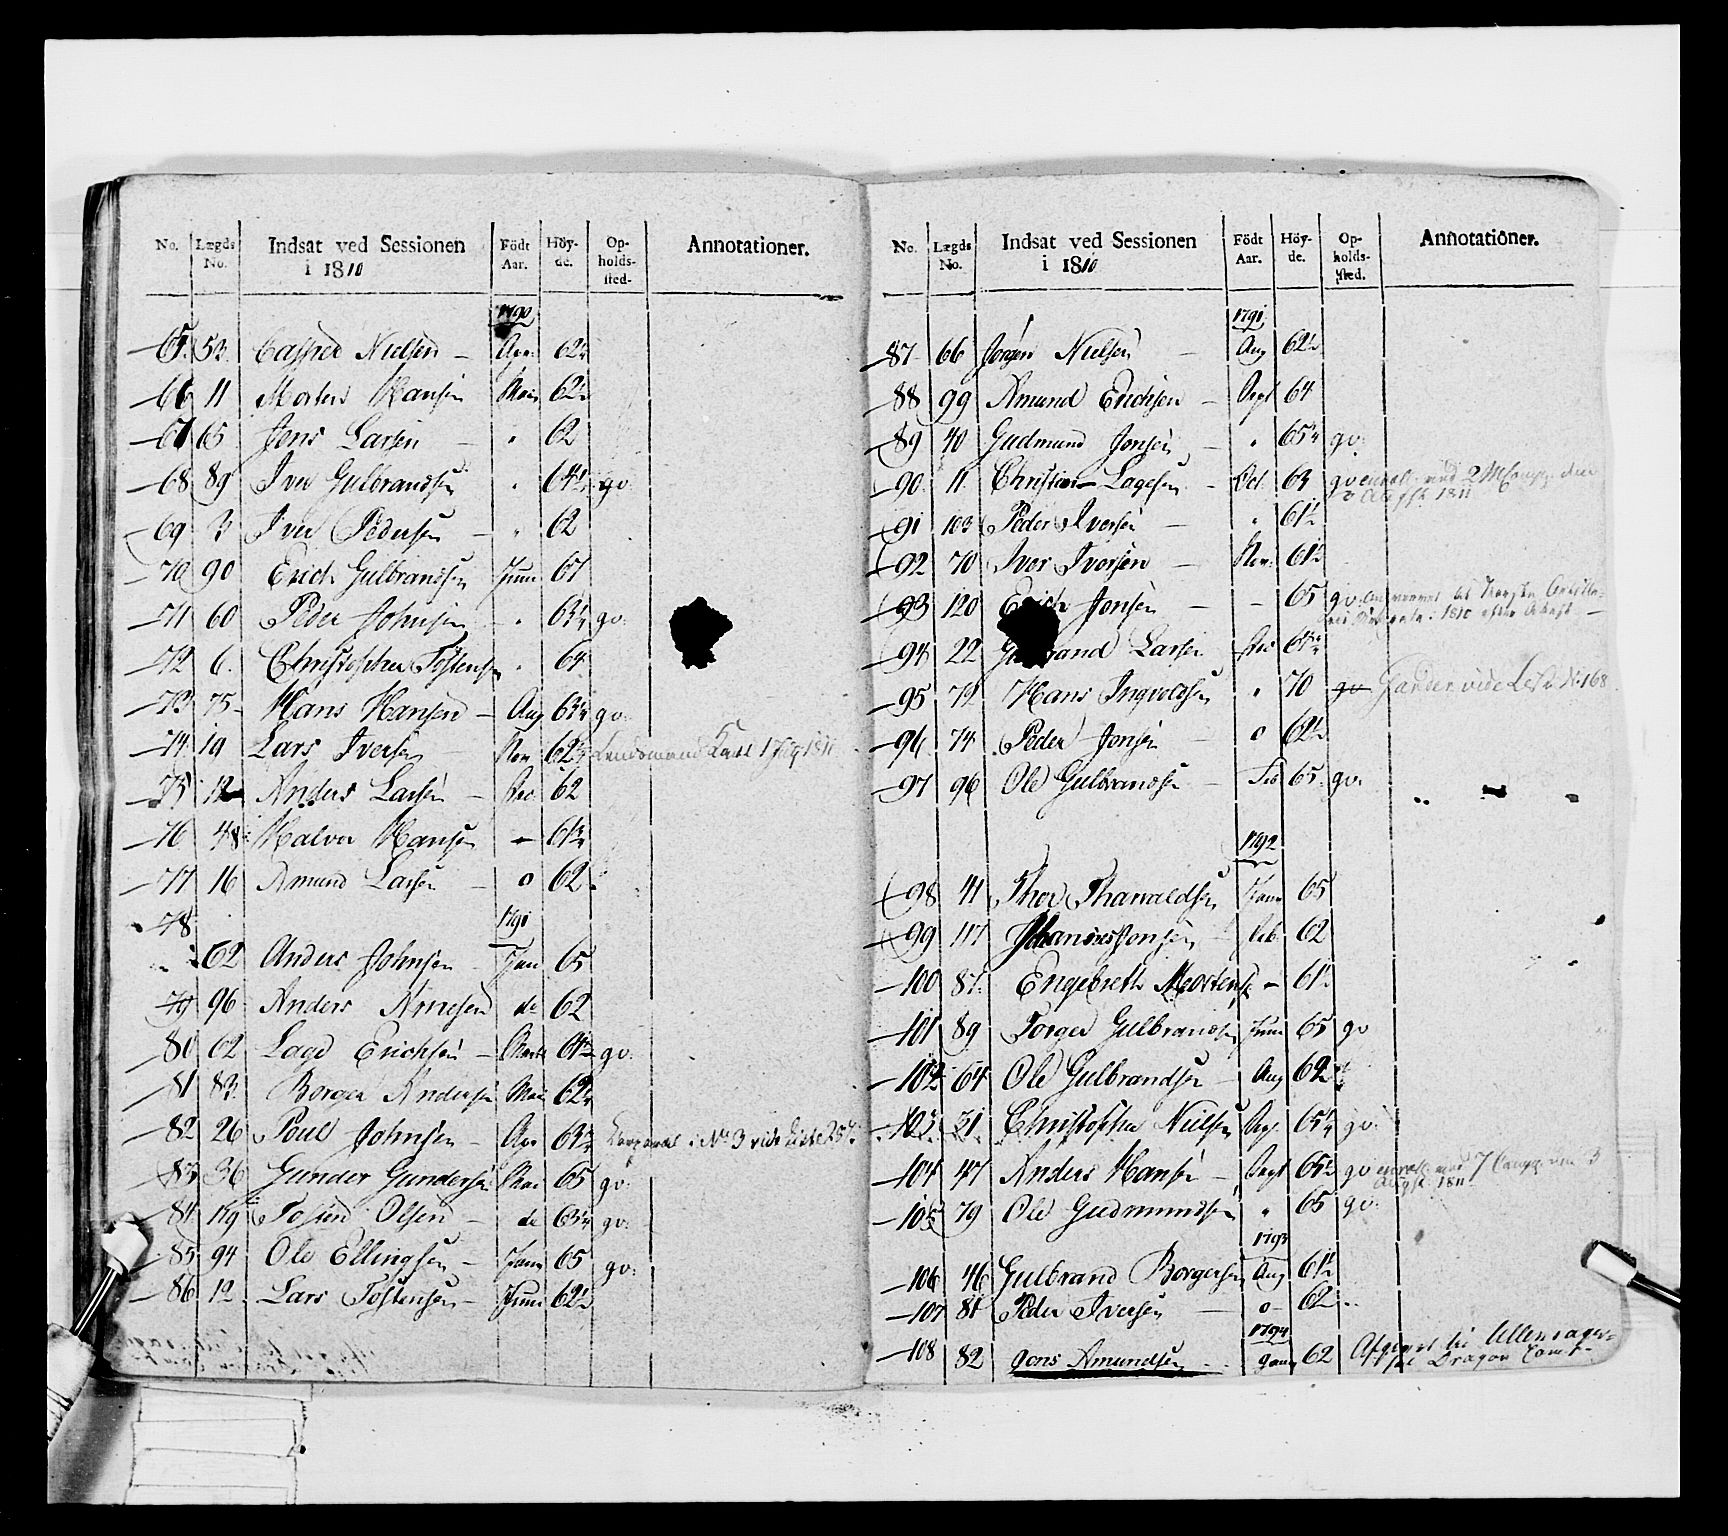 No. Lægds No. Indsat ved Sessionen i 1810 Födt Aar. Höy-de. Op-holds-sted. Annotationer.
1790
65 53 Nielsen – Apr: 62¼
66 11 Morten Hansen Mai 62½
67 65 Jens Larsen – " 62
68 89 Iver Gulbrandsen " 64½ gv:
69 3 Iver Pedersen – " 62
70 90 Erich Gulbrandsen Juni 67
71 60 Peder Johnsen – " 63¼ gv:
72 6. Christopher Tostensen " 64
73 75 – Hans Hansen – Aug 63¼ gv:
74 19 Lars Iversen Nov 62¾ Lensmand Karl 1811
75 12 Anders Larsen – Dec 62
76 48 Halvor Hansen – 61¾
77 16 Amund Larsen – o 62
78
1791
62 Anders Johnsen – Jan 65
79 96 Anders Arnesen do 62
80 62 Lage Erichsen – Marts 61½ gv:
81 83. Borger Andersen Mai 62¼
82 26 Poul Johnsen – Apr 63¾ i No 3 vide Liste 257
83 36 Gunder Gundersen Mai 65 gv:
84 119 Olsen – do 63¼ gv:
85 94 Ole Ellingsen – Juni 65 gv:
86 12 Lars Tostensen – Juni 62½
No. Lægds No. Indsat ved Sessionen i 1810 Födt Aar. Höy-de. Op-holds-sted. Annotationer.
1791
87 66 Jörgen Nielsen – Aug 62½
88 99 Amund Erichsen – Sept 64
89 40 Gudmund Jonsen – " 65¾ gv:
90 11 Christian Lagesen – Oct 63 gv enroll: ved 2 Comp: den
1811
91 103 Peder Iversen – " 61½
92 70 Iver Iversen – Nov: 61½
93 120 Erich Jonsen – – 65 gv:
1810 efter Attest –
94 22 Gulbrand Larsen Dec 61¾
95 72 Hans Ingvoldsen " 70 gv Garder vide Liste No 168
96 74 Peder Jonsen – o 62½
97 96 Ole Gulbrandsen – 65 gv:
1792
98 41 Thor Tharvaldsen Janu 65
99 117 Johannes Jonsen – Feb 62
100 87. Engebreth Mortensen – 61½
101 89 Torger Gulbrandsen Juni 65 gv
102 64 Ole Gulbrandsen – Aug 62
103 21 Christopher Nielsen Sept. 65¼ gv:
104 47 Anders Hansen – Sept 65½ gv enroll: ved 7 Comp: den 3
Augst 1811
105 79 Ole Gudmundsen " 65 gv:
1793
106 46 Gulbrand Borgersen Aug 61½
107 81 Peder Iversen – o – 62
1794
108 82 Jons Amundsen – Janu 62 Afgivet til Ullensager-
ske Dragon Comp –